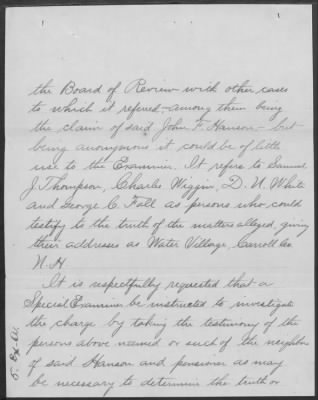 the Board of Review with other cases
to which it referred - among them being
the claim of said John F. Hanson, - but
being anonymous it could be of little
use to the Examiner. It refers to Samuel
J. Thompson, Charles Wiggin, D. N. White
and George C. Fall as persons who could
testify to the truth of the matters alleged, giving
their addresses as Water Village, Carroll Co.
N. H.
It is respectfully requested that a
Special Examiner be instructed to investigate
the charge by taking the testimony of the
persons above named or such of the neighbors
of said Hanson and pensioner as may
be necessary to determine the truth or